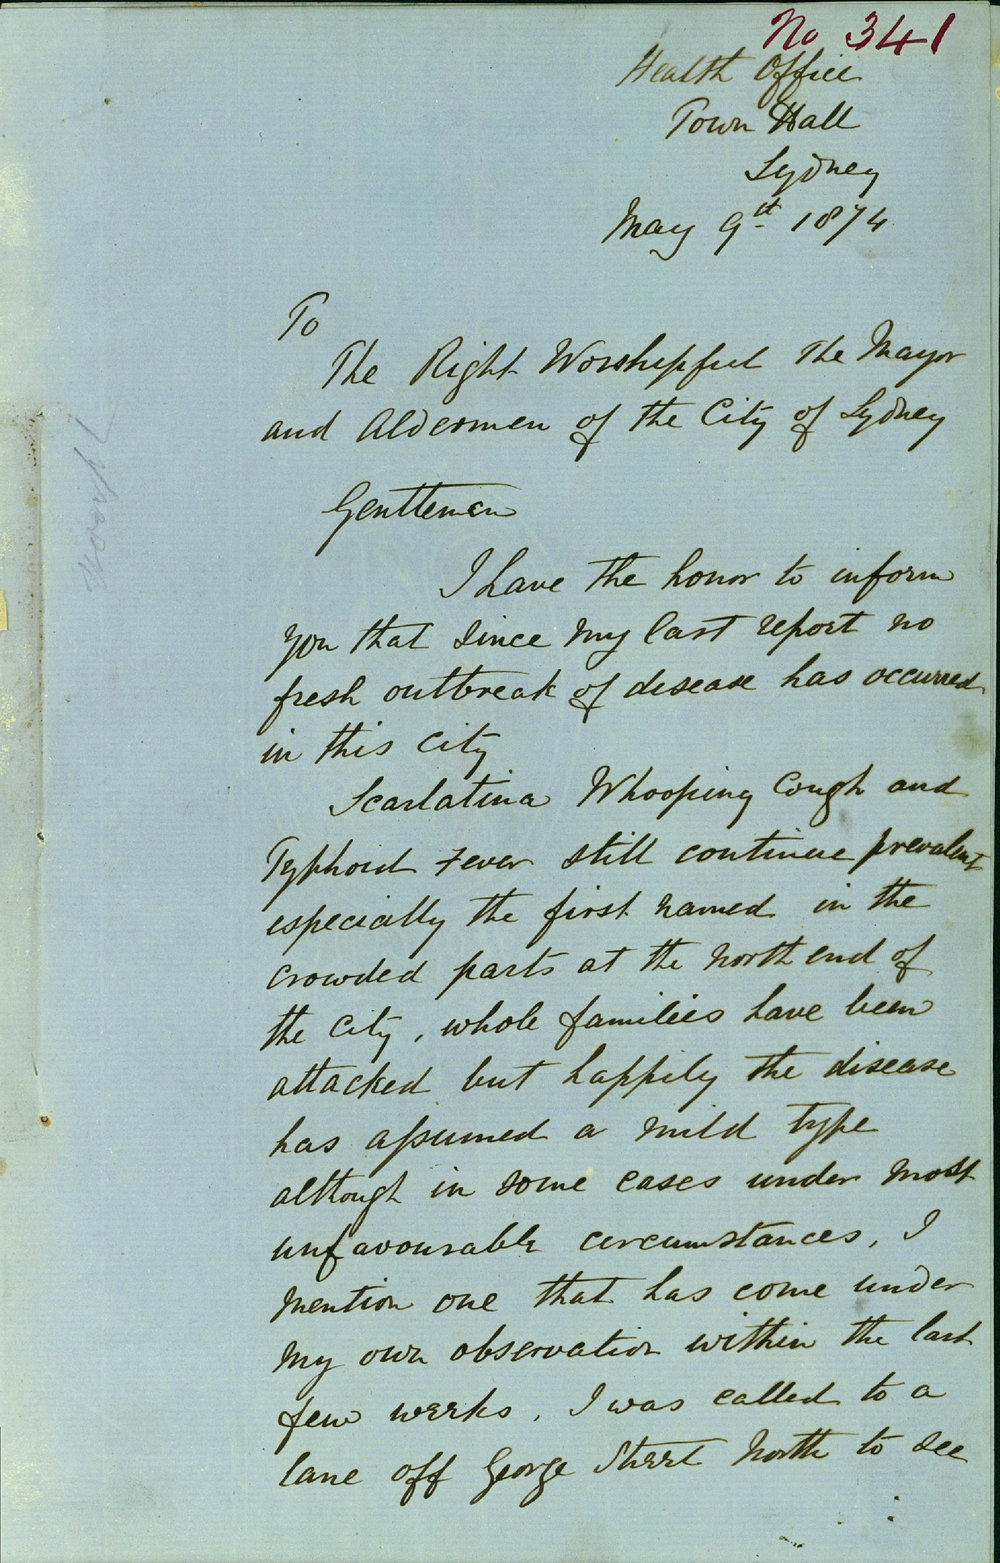 No 341
Health Office
Town Hall
Sydney
May 9th 1874
To
The Right Worshipful the Mayor
and Aldermen of the City of Sydney
Gentlemen
I have the honor to inform
you that since my last report no
fresh outbreak of disease has occurred
in this City
Scarlatina Whooping Cough and
Typhoid Fever still continue prevalent
especially the first named in the
crowded parts at the North end of
the City, whole families have been
attacked but happily the disease
has assumed a mild type
although in some cases under most
unfavourable circumstances, I
mention one that has come under
my own observation within the last
few weeks, I was called to a
lane off George Street North to see